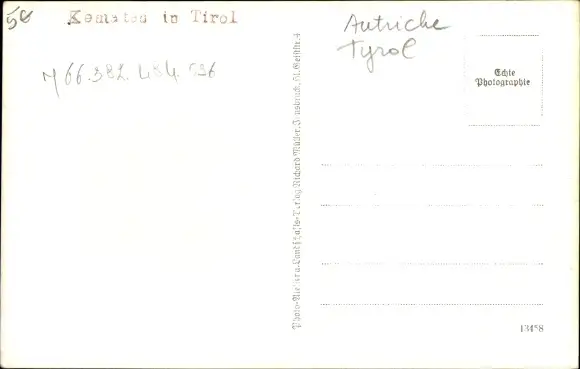 50 Kematen in Tirol
M 66.382.484.596
Autriche
Tyrol
Echte
Photographie
Photo-Atelier u. Landschafts-Verlag Richard Müller, Innsbruck, St. Geiststr. 4
13458